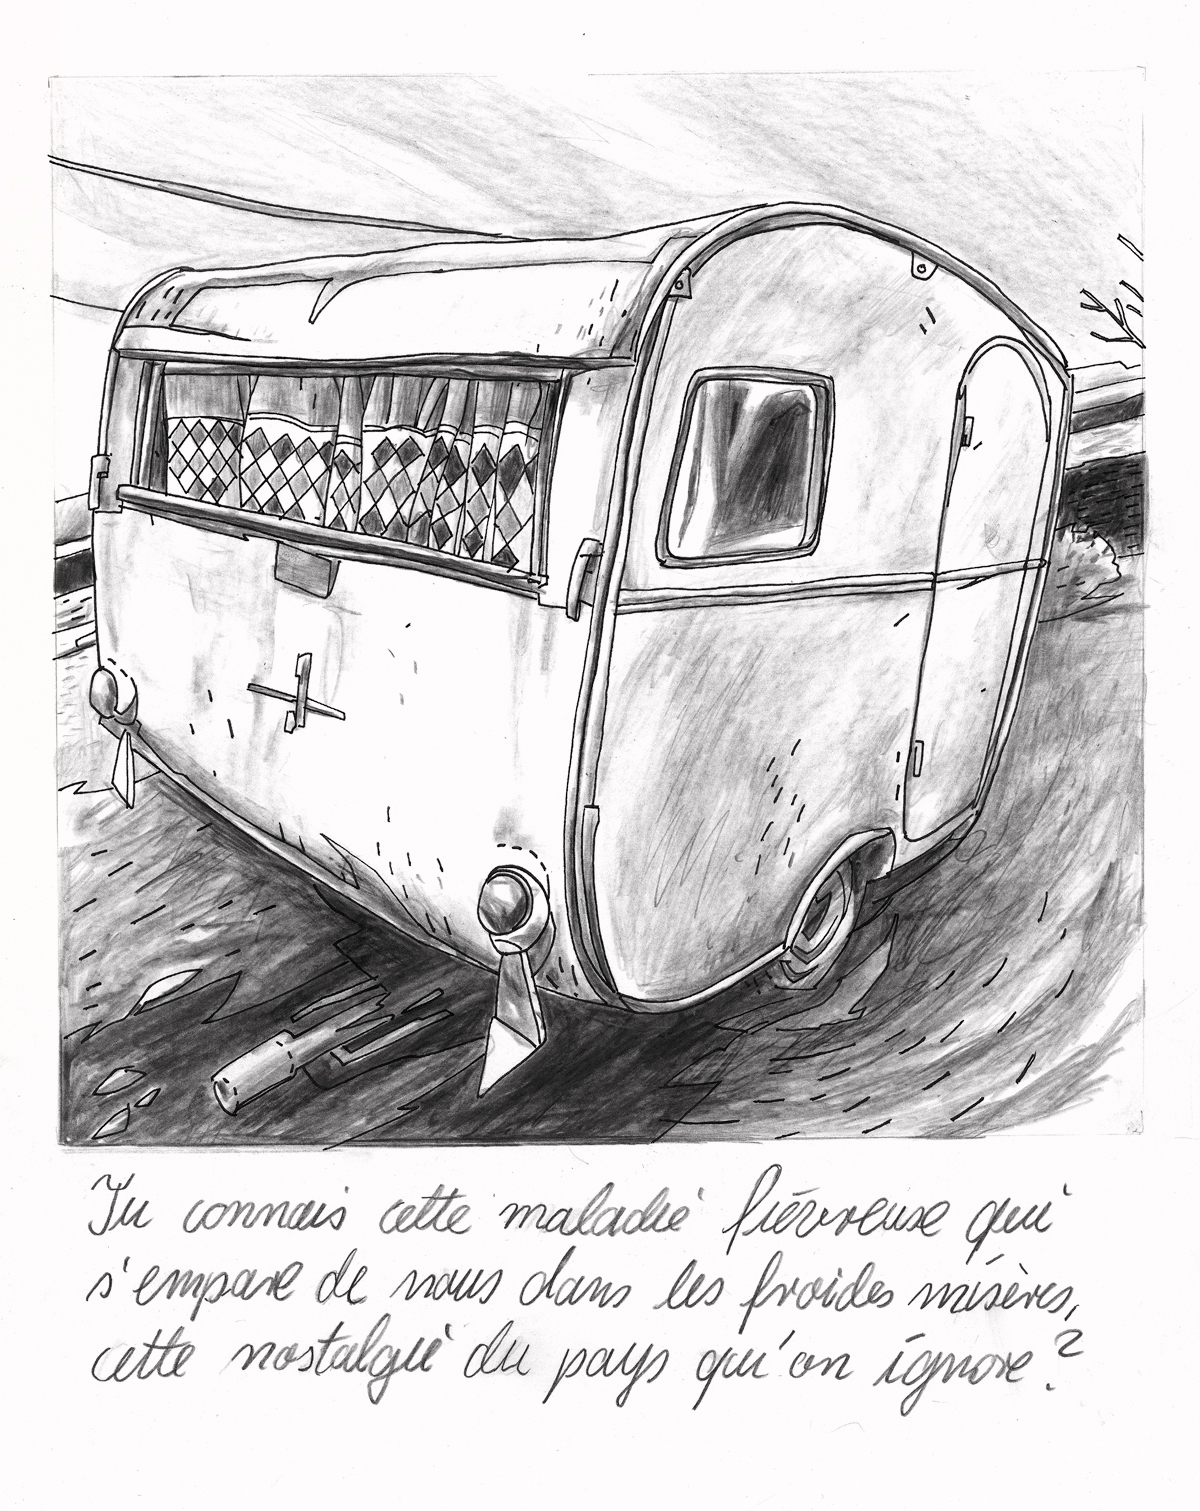 Tu connais cette maladie fiévreuse qui
s'empare de nous dans les froides misères,
cette nostalgie du pays qu'on ignore ?